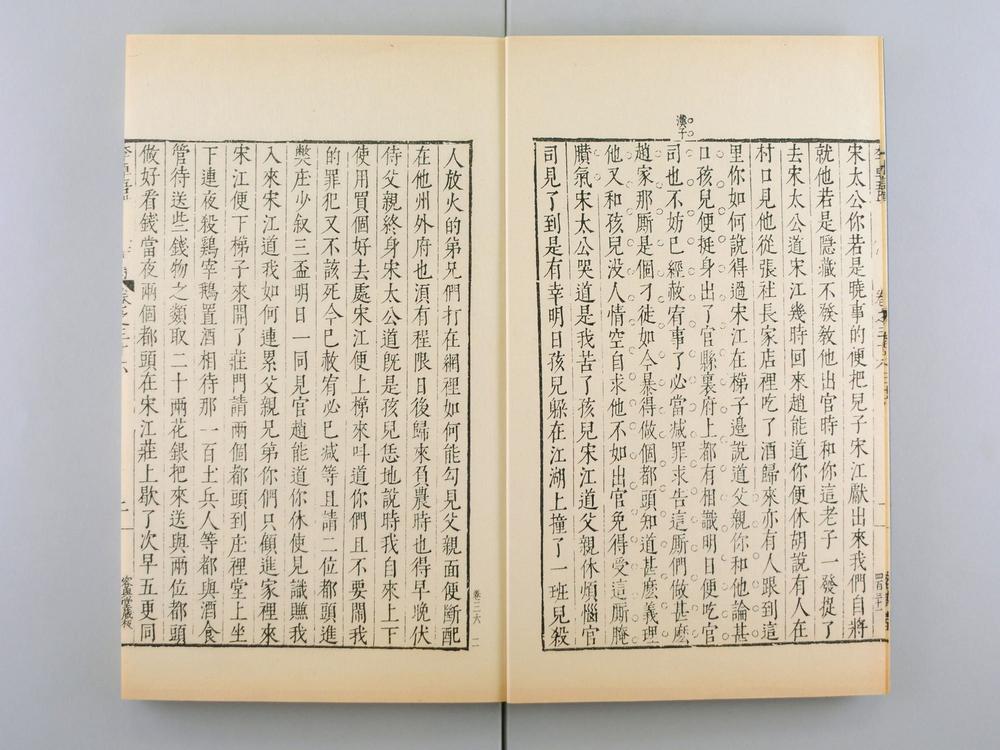 漢子
宋太公你若是曉事的便把兒子宋江獻出來我們自將
就他若是隱藏不發教他出官時和你這老子一發捉了
去宋太公道宋江幾時回來趙能道你便休胡說有人在
村口見他從張社長家店裡吃了酒歸來亦有人跟到這
里你如何說得過宋江在梯子邊說道父親你和他論甚
口孩兒便挺身出了官縣裏府上都有相識明日便吃官
司也不妨已經赦宥事了必當减罪求告這厮們做甚麽
趙家那厮是個刁徒如今暴得做個都頭知道甚麽義理
他又和孩兒没人情空自求他不如出官免得受這厮腌
臢氣宋太公哭道是我苦了孩兒宋江道父親休煩惱官
司見了到是有幸明日孩兒躲在江湖上撞了一班兒殺
卷三六 二
人放火的弟兄們打在網裡如何能勾見父親面便斷配
在他州外府也須有程限日後歸來負農時也得早晚伏
侍父親終身宋太公道既是孩兒恁地說時我自來上下
使用買個好去處宋江便上梯來呌道你們且不要鬧我
的罪犯又不該死今已赦宥必已减等且請二位都頭進
獘庄少叙三盃明日一同見官趙能道你休使見識賺我
入來宋江道我如何連累父親兄弟你們只顧進家裡來
宋江便下梯子來開了莊門請兩個都頭到庄裡堂上坐
下連夜殺鷄宰鵝置酒相待那一百土兵人等都與酒食
管待送些錢物之類取二十兩花銀把來送與兩位都頭
做好看錢當夜兩個都頭在宋江莊上歇了次早五更同
容與堂藏板